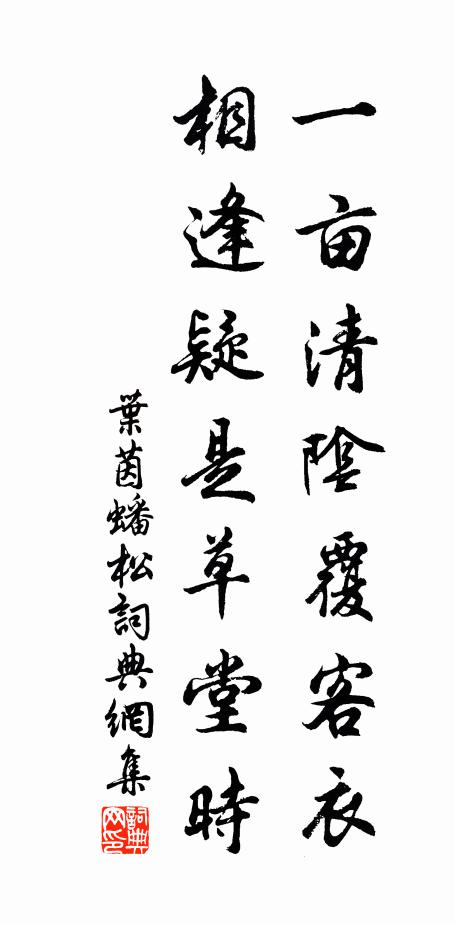 一亩清陰覆客衣
相逢疑是草堂時
葉茵蟠松詞典網集
詞典网印